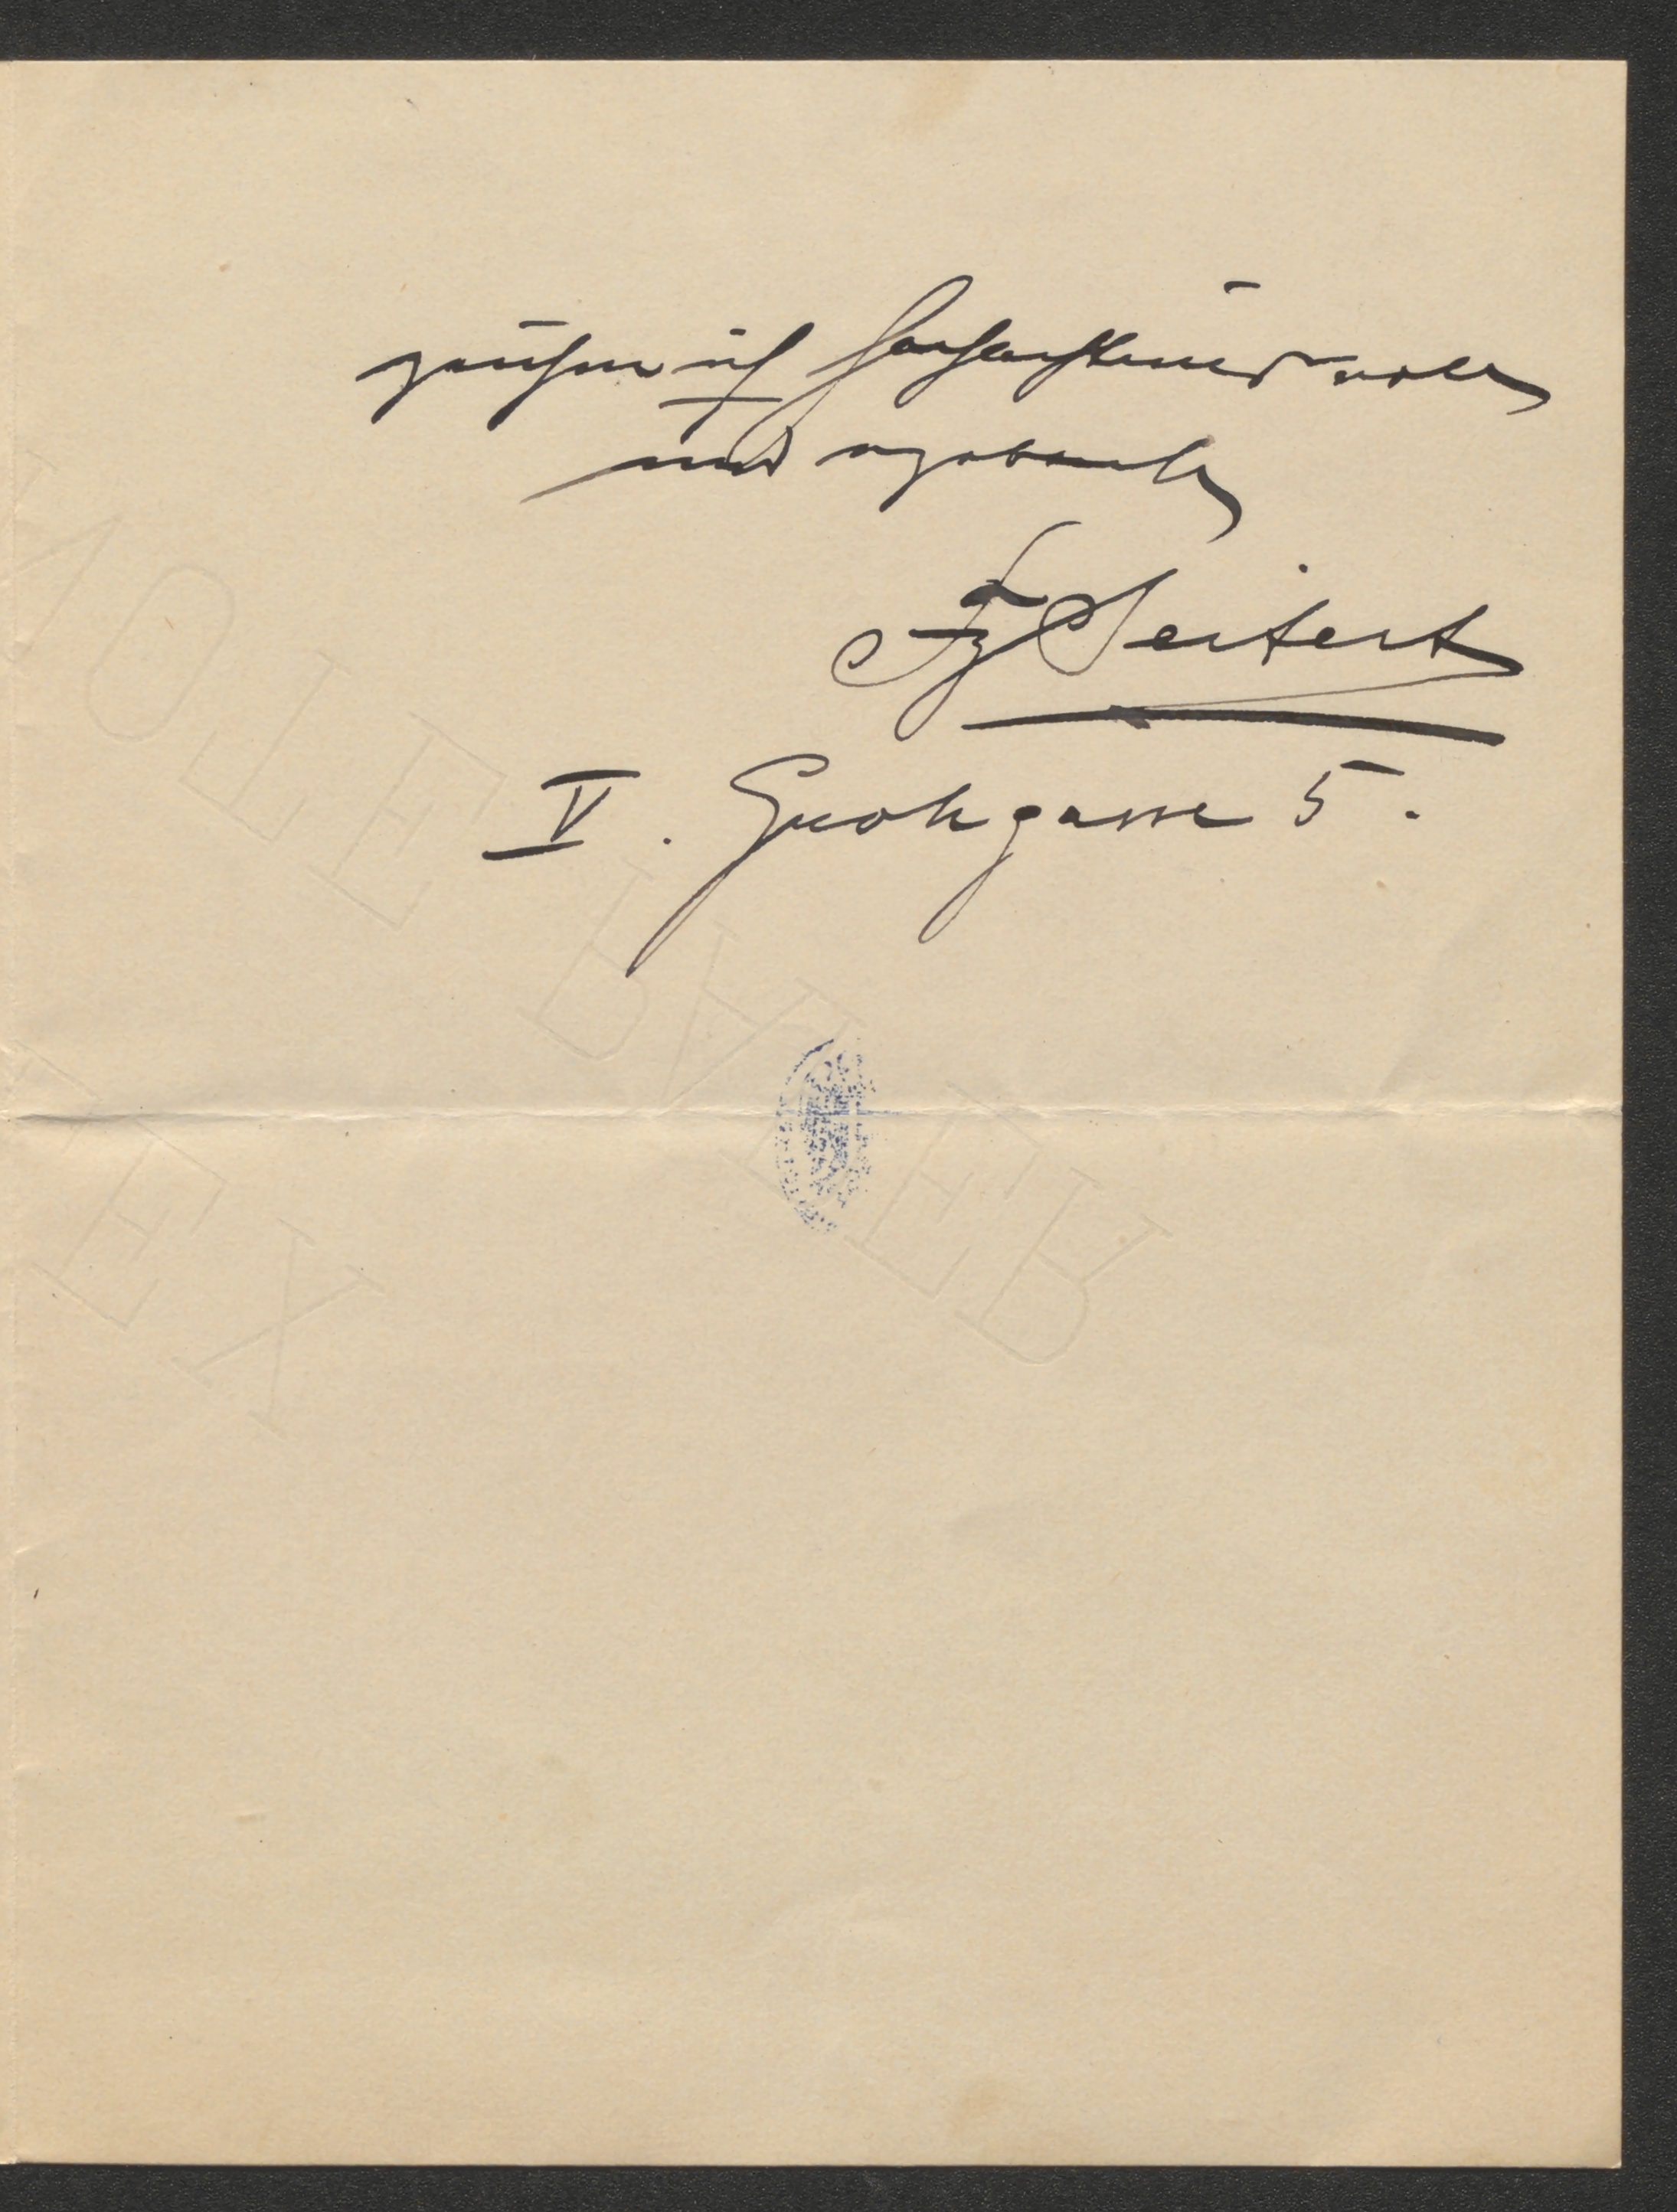 zeichne ich hochachtungsvoll
und ergebenst
Fz Seifert
V. Grohgasse 5.